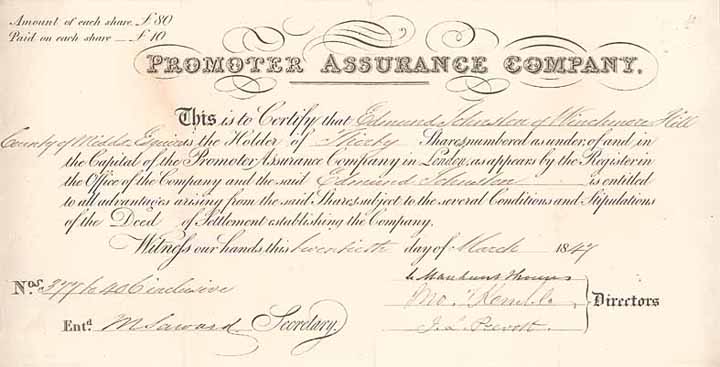 Amount of each share £80
Paid on each share £10
PROMOTER ASSURANCE COMPANY.
This is to Certify that Edmund Johnston of Winchmore Hill
County of Middx Esquire is the Holder of Thirty Shares numbered as under, of and in
the Capital of the Promoter Assurance Company in London, as appears by the Register in
the Office of the Company and the said Edmund Johnston is entitled
to all advantages arising from the said Shares, subject to the several Conditions and Stipulations
of the Deed of Settlement establishing the Company.
Witness our hands this twentieth day of March 1847
Nos. 377 to 406 inclusive
Directors
Entd. M Saward Secretary.
J. L. Prevost